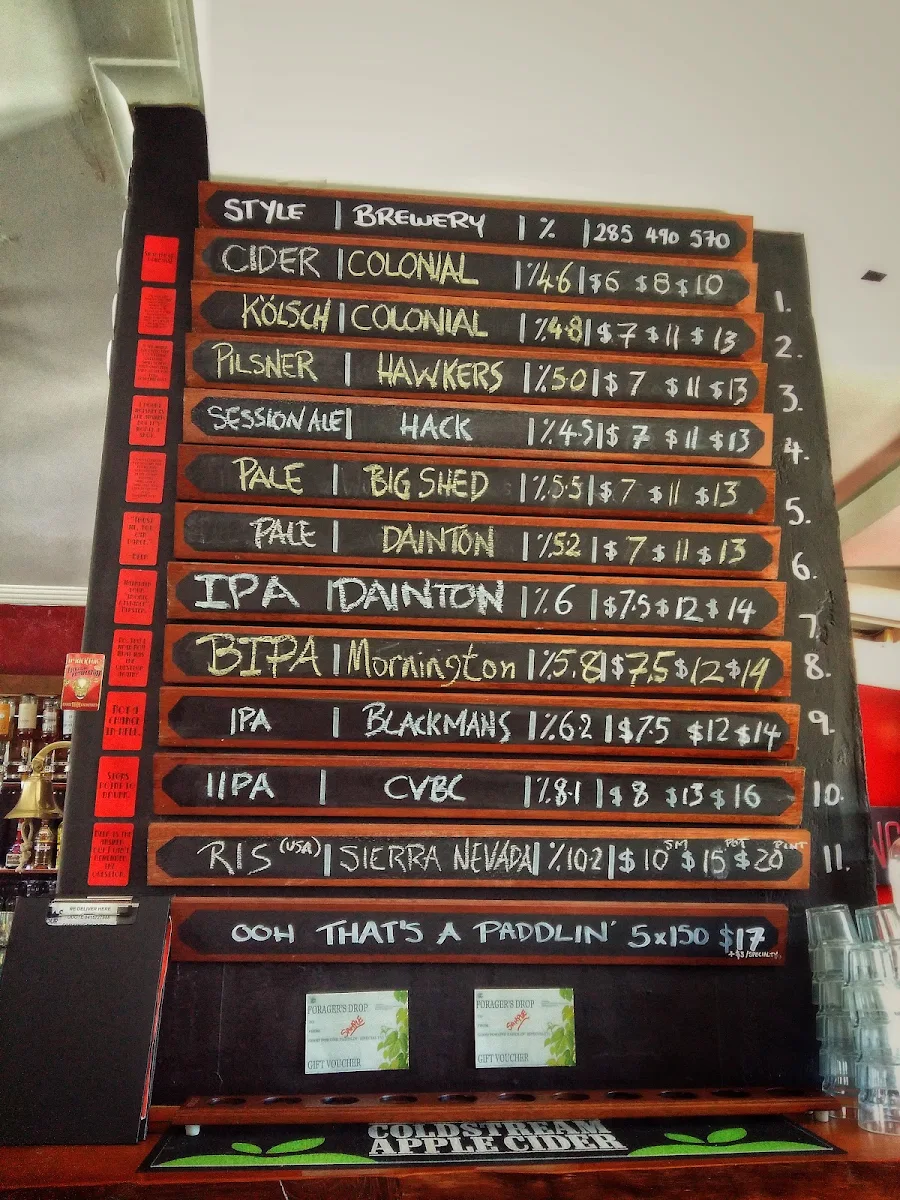 STYLE | BREWERY | % | 285 490 570
CIDER | COLONIAL | % 4.6 | $6 $8 $10 1.
KÖLSCH | COLONIAL | % 4.8 | $7 $11 $13 2.
PILSNER | HAWKERS | % 5.0 | $7 $11 $13 3.
SESSION ALE | HACK | % 4.5 | $7 $11 $13 4.
PALE | BIG SHED | % 5.5 | $7 $11 $13 5.
PALE | DAINTON | % 5.2 | $7 $11 $13 6.
IPA | DAINTON | % 6 | $7.5 $12 $14 7.
BIPA | Mornington | % 5.8 | $7.5 $12 $14 8.
IPA | BLACKMANS | % 6.2 | $7.5 $12 $14 9.
IIPA | CVBC | % 8.1 | $8 $13 $16 10.
RIS (USA) | SIERRA NEVADA | % 10.2 | $10 SM $15 POT $20 PINT 11.
OOH THAT'S A PADDLIN' 5x150 $17
+$3/SPECIALTY
FORAGER'S DROP
SAMPLE
GIFT VOUCHER
FORAGER'S DROP
SAMPLE
GIFT VOUCHER
COLDSTREAM
APPLE CIDER